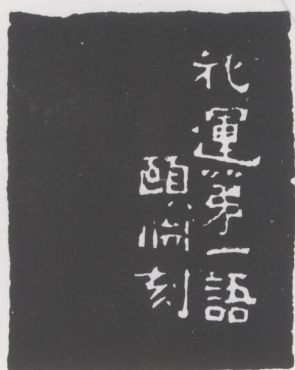 礼運第一語
頤淵刻